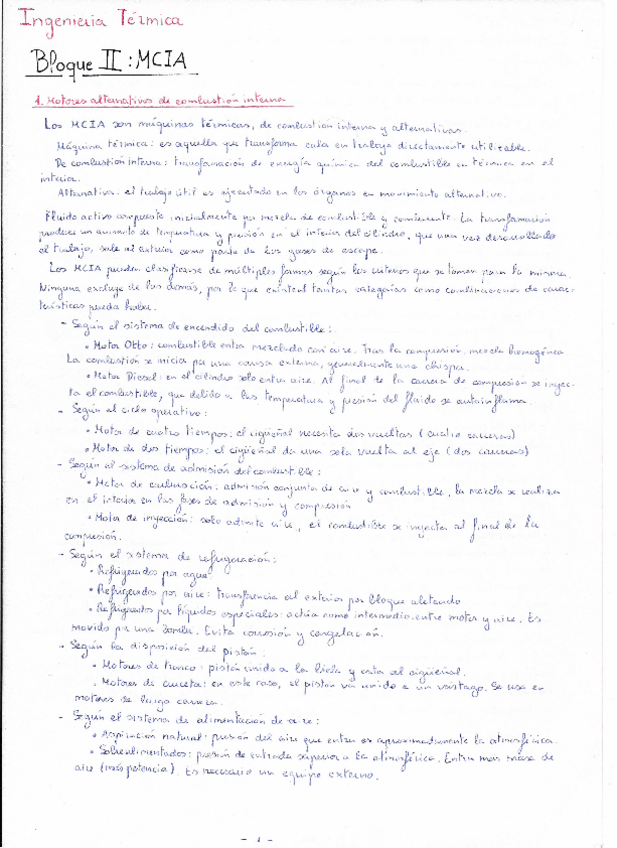 Ingeniería Térmica
Bloque II: MCIA
1. Motores alternativos de combustión interna
Los MCIA son máquinas térmicas, de combustión interna y alternativas.
Máquina térmica: es aquella que transforma calor en trabajo directamente utilizable.
De combustión interna: transformación de energía química del combustible en térmica en el
interior.
Alternativa: el trabajo útil es ejecutado en los órganos en movimiento alternativo.
Fluido activo compuesto inicialmente por mezcla de combustible y comburente. La transformación
produce un aumento de temperatura y presión en el interior del cilindro, que una vez desarrollado
el trabajo, sale al exterior como parte de los gases de escape.
Los MCIA pueden clasificarse de múltiples formas según los criterios que se toman para la misma.
Ninguna excluye de las demás, por lo que existen tantas categorías como combinaciones de carac-
terísticas pueda haber.
- Según el sistema de encendido del combustible:
• Motor Otto: combustible entra mezclado con aire. Tras la compresión, mezcla homogénea
La combustión se inicia por una causa externa, generalmente una chispa.
• Motor Diesel: en el cilindro solo entra aire. Al final de la carrera de compresión se inyec-
ta el combustible, que debido a las temperatura y presión del fluido se autoinflama
- Según el ciclo operativo:
• Motor de cuatro tiempos: el cigüeñal necesita dos vueltas (cuatro carreras)
• Motor de dos tiempos: el cigüeñal da una sola vuelta al eje (dos carreras)
- Según el sistema de admisión del combustible:
• Motor de carburación: admisión conjunta de aire y combustible, la mezcla se realiza
en el interior en las fases de admisión y compresión
• Motor de inyección: solo admite aire, el combustible se inyecta al final de la
compresión.
- Según el sistema de refrigeración:
• Refrigerados por agua
• Refrigerados por aire: transferencia al exterior por bloque aleteado
• Refrigerados por líquidos especiales: actúa como intermedio entre motor y aire. Es
movido por una bomba. Evita corrosión y congelación.
- Según la disposición del pistón:
• Motores de tronco: pistón unido a la biela y esta al cigüeñal.
• Motores de cruceta: en este caso, el pistón va unido a un vástago. Se usa en
motores de larga carrera.
- Según el sistema de alimentación de aire:
• Aspiración natural: presión del aire que entra es aproximadamente la atmosférica.
• Sobrealimentados: presión de entrada superior a la atmosférica. Entra mas masa de
aire (más potencia). Es necesario un equipo externo.
- 1 -